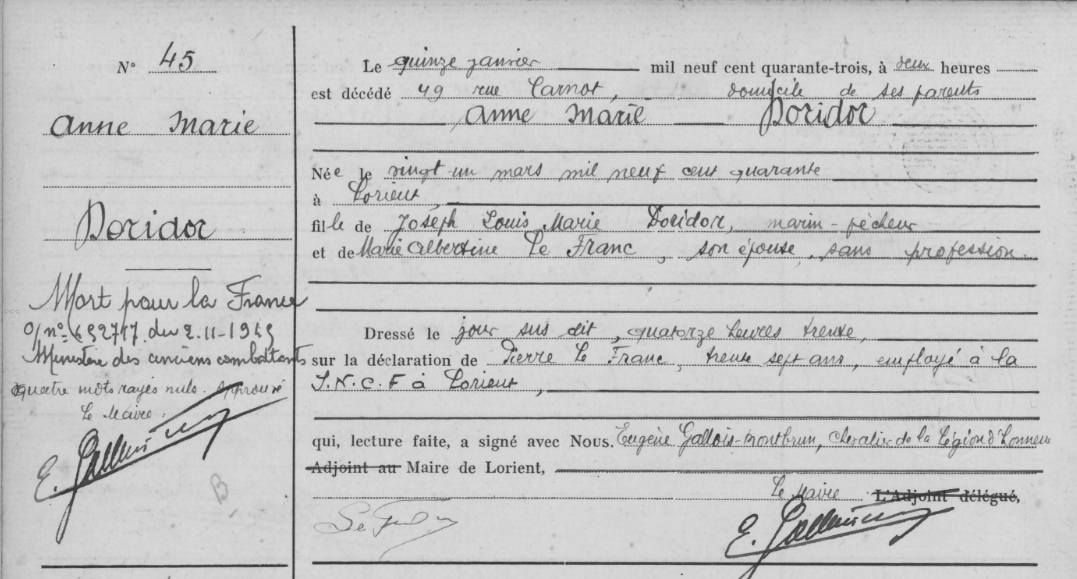 N° 45
Anne Marie
Doridor
Mort pour la France
du 2.11-1945
Ministère des anciens combattants
quatre mots rayés nuls. Approuvé
Le Maire.
B
Le quinze janvier mil neuf cent quarante-trois, à deux heures
est décédé 49 rue Carnot, domicile de ses parents
Anne Marie Doridor
Née le vingt un mars mil neuf cent quarante
à Lorient,
fille de Joseph Louis Marie Doridor, marin-pêcheur
et de Marie Albertine Le Franc, son épouse, sans profession.
Dressé le jour sus dit, quatorze heures trente,
sur la déclaration de Pierre Le Franc, trente sept ans, employé à la
S.N.C.F à Lorient,
qui, lecture faite, a signé avec Nous. Eugène Gallois-Montbrun, chevalier de la Légion d'Honneur
Adjoint au Maire de Lorient,
Le Maire L'Adjoint délégué,